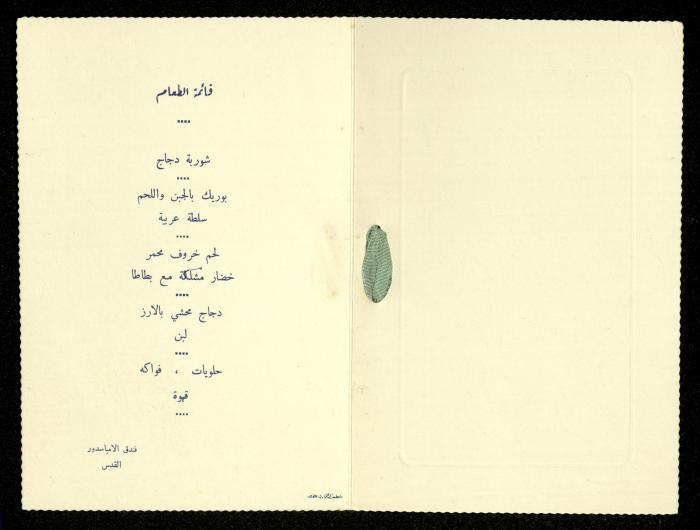 قائمة الطعام
شوربة دجاج
بوريك بالجبن واللحم
سلطة عربية
لحم خروف محمر
خضار مشلكة مع بطاطا
دجاج محشي بالارز
لبن
حلويات ، فواكه
قهوة
فندق الامباسدور
القدس